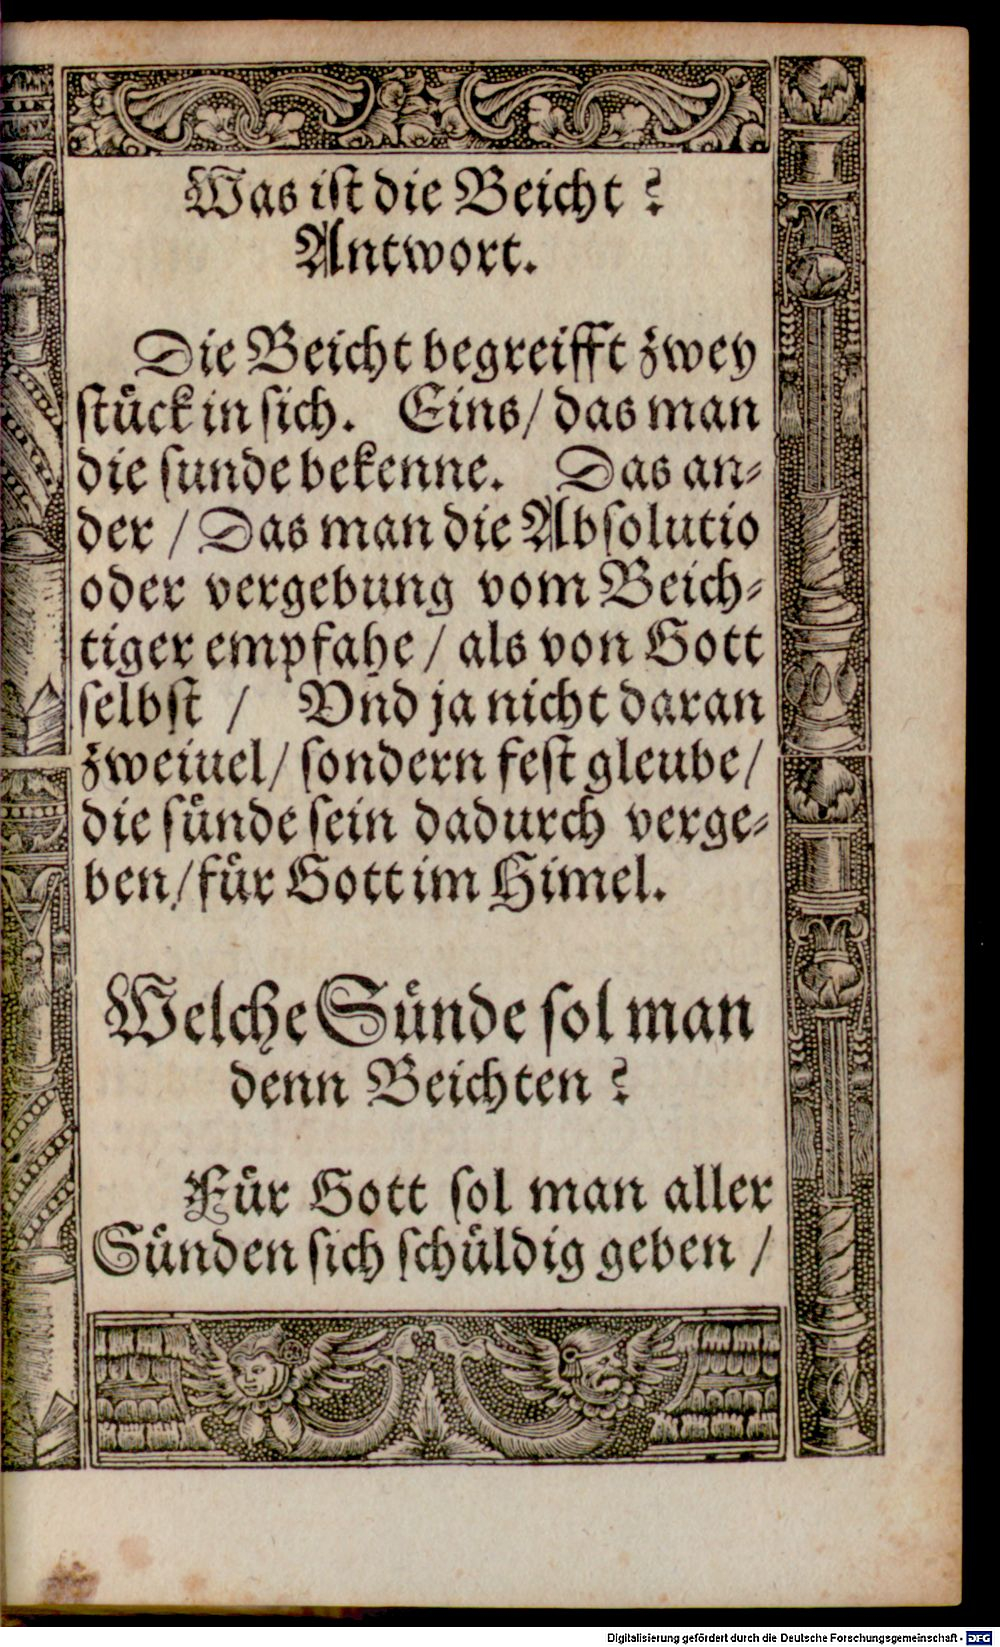 Was ist die Beicht?
Antwort.
Die Beicht begreifft zwey
stück in sich. Eins/ das man
die sunde bekenne. Das an-
der / Das man die Absolutio
oder vergebung vom Beich-
tiger empfahe / als von Gott
selbst / Vnd ja nicht daran
zweiuel/ sondern fest gleube/
die sünde sein dadurch verge-
ben/ für Gott im Himel.
Welche Sünde sol man
denn Beichten?
Für Gott sol man aller
Sünden sich schüldig geben /
Digitalisierung gefördert durch die Deutsche Forschungsgemeinschaft - DFG